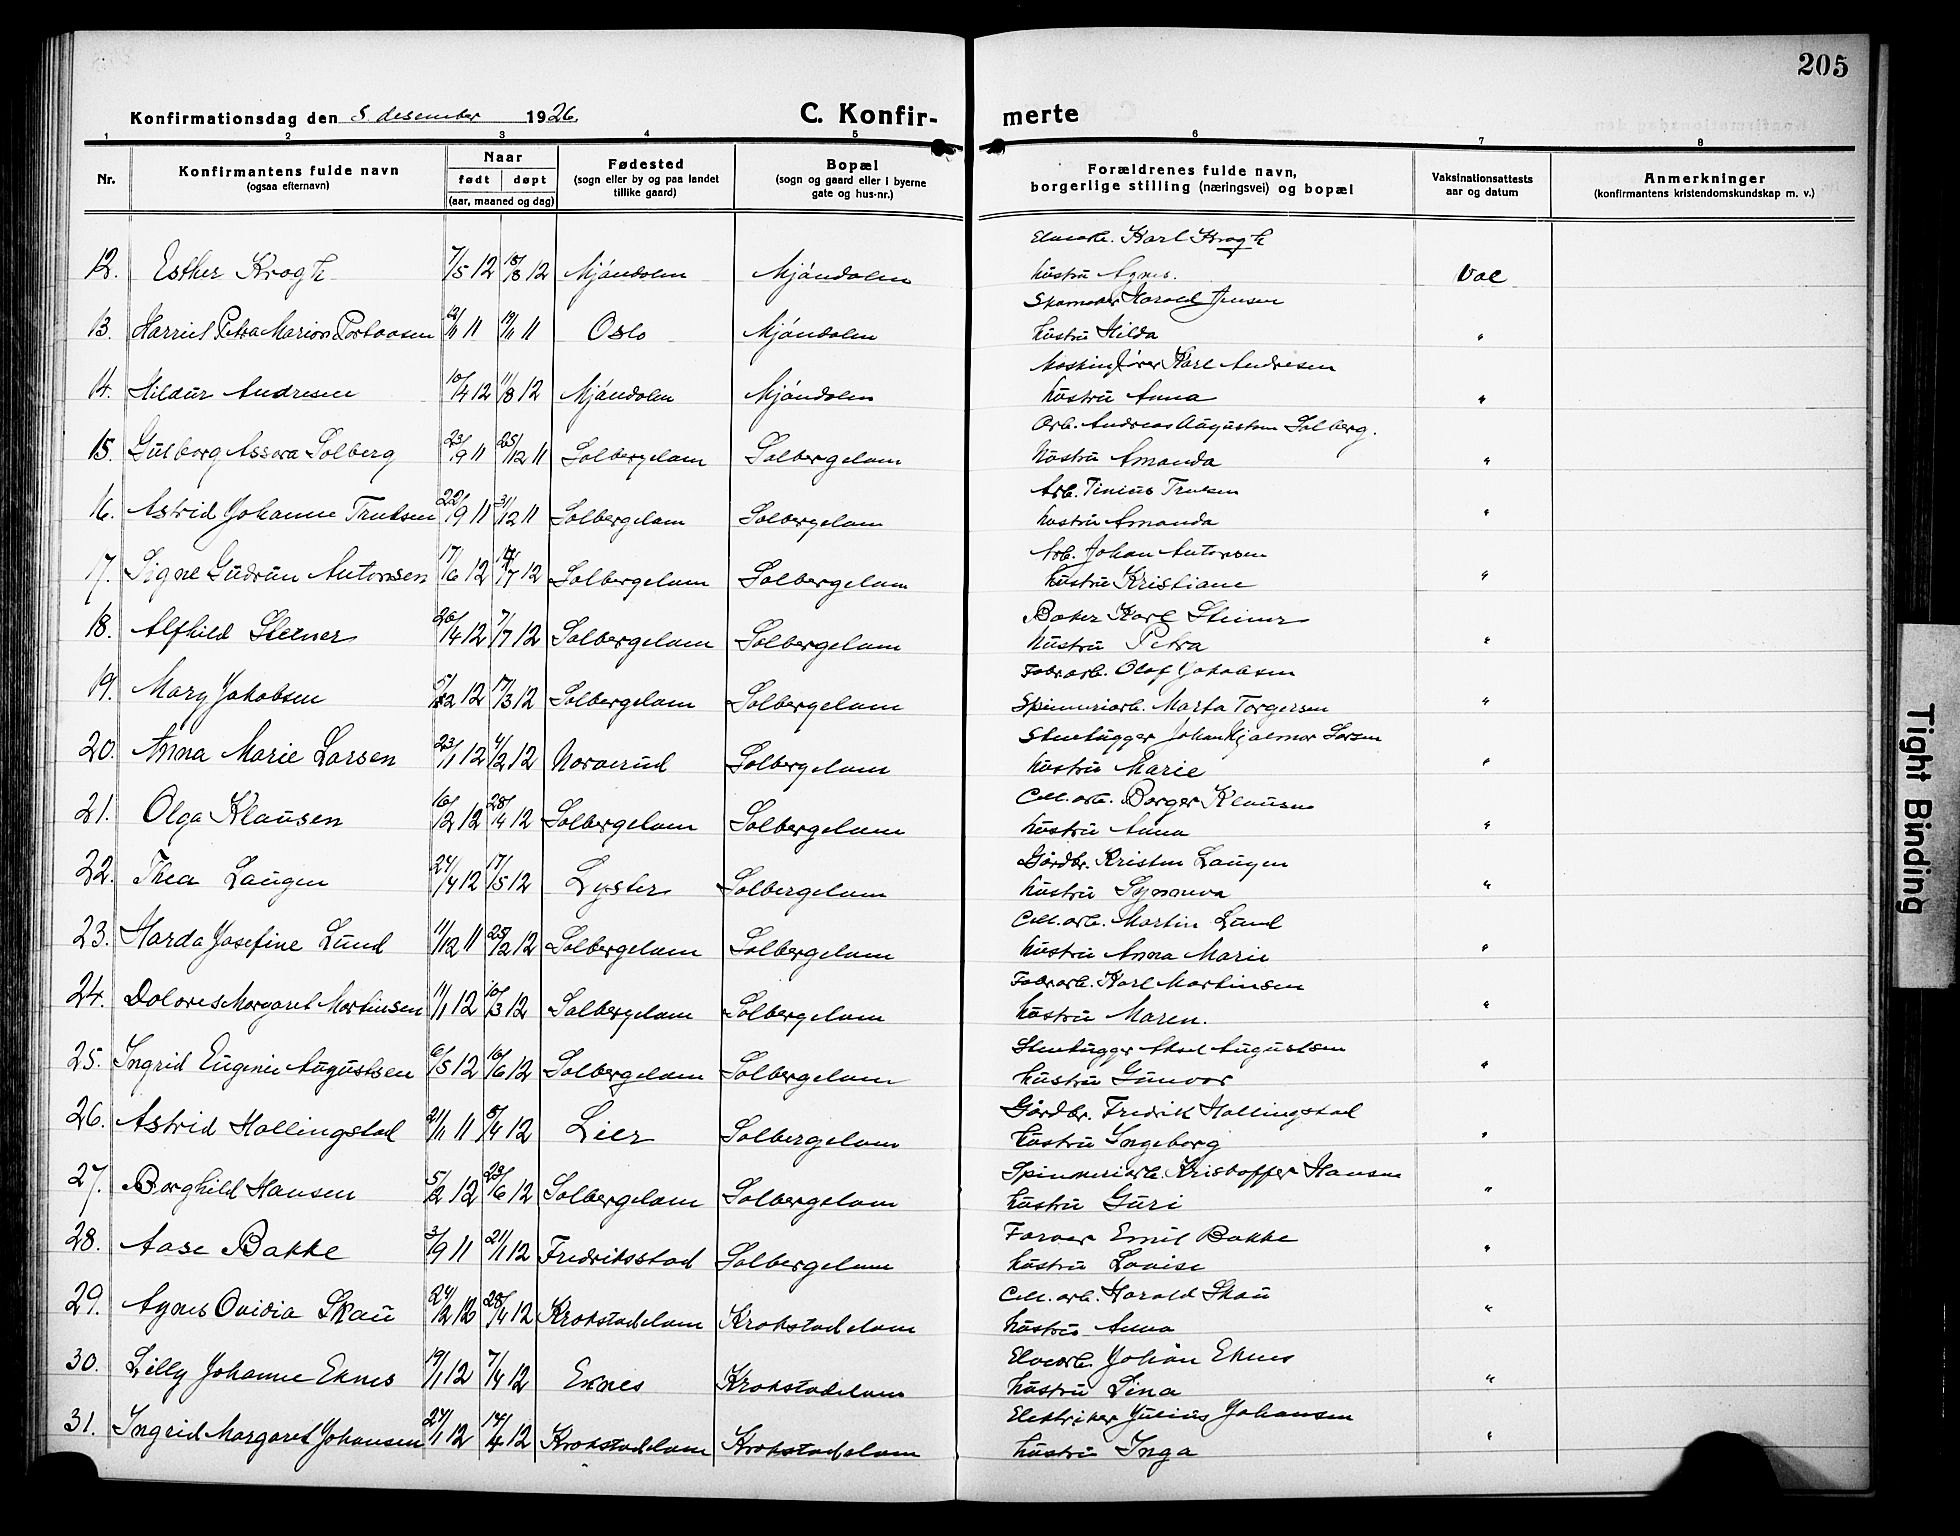 205
Konfirmationsdag den 5 desember 1926. C. Konfir- merte
1 2 3 4 5 6 7 8
Nr. Konfirmantens fulde navn (ogsaa efternavn) Naar født døpt (aar, maaned og dag) Fødested (sogn eller by og paa landet tillike gaard) Bopæl (sogn og gaard eller i byerne gate og hus-nr.) Forældrenes fulde navn, borgerlige stilling (næringsvei) og bopæl Vaksinationsattests aar og datum Anmerkninger (konfirmantens kristendomskundskap m. v.)
Karl Krogh
12. Esther Krogh 7/5 12 18/8 12 Mjöndalen Mjöndalen hustru Agnes. Vac
Skomaker Harald Jensen
13. Harriet Petra Marion Portaasen 11 19/11 11 Oslo Mjöndalen hustru Hilda "
Maskinfører Karl Andresen
14. Hildur Andresen 10/4 12 11/8 12 Mjöndalen Mjöndalen hustru Anna "
Arb. Andreas Augustsen Solberg.
15. Gulborg Assora Solberg 23/9 11 25/12 11 Solbergelom Solbergelom hustru Amanda "
Arb. Tinius Trulsen
16. Astrid Johanne Trulsen 22/9 11 31/12 11 Solbergelom Solbergelom hustru Amanda "
Arb. Johan Antonsen
17. Signe Gudrun Antonsen 17/6 12 /7 12 Solbergelom Solbergelom hustru Kristiane "
Baker Karl Steiner
18. Alfhild Steiner 26/4 12 7/7 12 Solbergelom Solbergelom hustru Petra "
Fabrarb. Olaf Jakobsen
19. Mary Jakobsen 5/2 12 17/3 12 Solbergelom Solbergelom Spinneriarb. Marta Torgersen "
Stenhugger Johan Hjalmar Larsen
20. Anna Marie Larsen 23/1 12 4/2 12 Norverud Solbergelom hustru Marie "
Cell. arb. Borger Klausen
21. Olga Klausen 16/2 12 28/4 12 Solbergelom Solbergelom hustru Anna "
Gårdbr. Kristen Laugen
22. Thea Laugen 24/4 12 17/5 12 Lyster Solbergelom hustru Synneva "
Cell. arb. Martin Lund
23. Harda Josefine Lund 11/12 11 25/2 12 Solbergelom Solbergelom hustru Anna Marie "
Fabrarb. Karl Martinsen
24. Dolores Margaret Martinsen 11/1 12 10/3 12 Solbergelom Solbergelom hustru Maren. "
Stenhugger Aksel Augustsen
25. Ingrid Eugenie Augustsen 6/5 12 16/6 12 Solbergelom Solbergelom hustru Gunvor "
Gårdbr. Fredrik Hallingstad
26. Astrid Hallingstad 21/11 11 5/4 12 Lier Solbergelom hustru Ingeborg "
Spinneriarb. Kristoffer Hansen
27. Borghild Hansen 5/2 12 23/6 12 Solbergelom Solbergelom hustru Guri "
Farver Emil Bakke
28. Aase Bakke 3/9 11 21/1 12 Fredriksstad Solbergelom hustru Lovise "
Cell. arb. Harald Skau
29. Agnes Ovidia Skau 24/2 12 28/4 12 Krokstadelom Krokstadelom hustru Anna "
Elvearb. Johan Eknes
30. Lilly Johanne Eknes 19/1 12 7/4 12 Eknes Krokstadelom hustru Lina "
Elektriker Julius Johansen
31. Ingrid Margaret Johansen 27/1 12 14/4 12 Krokstadelom Krokstadelom hustru Inga "
Tight Binding